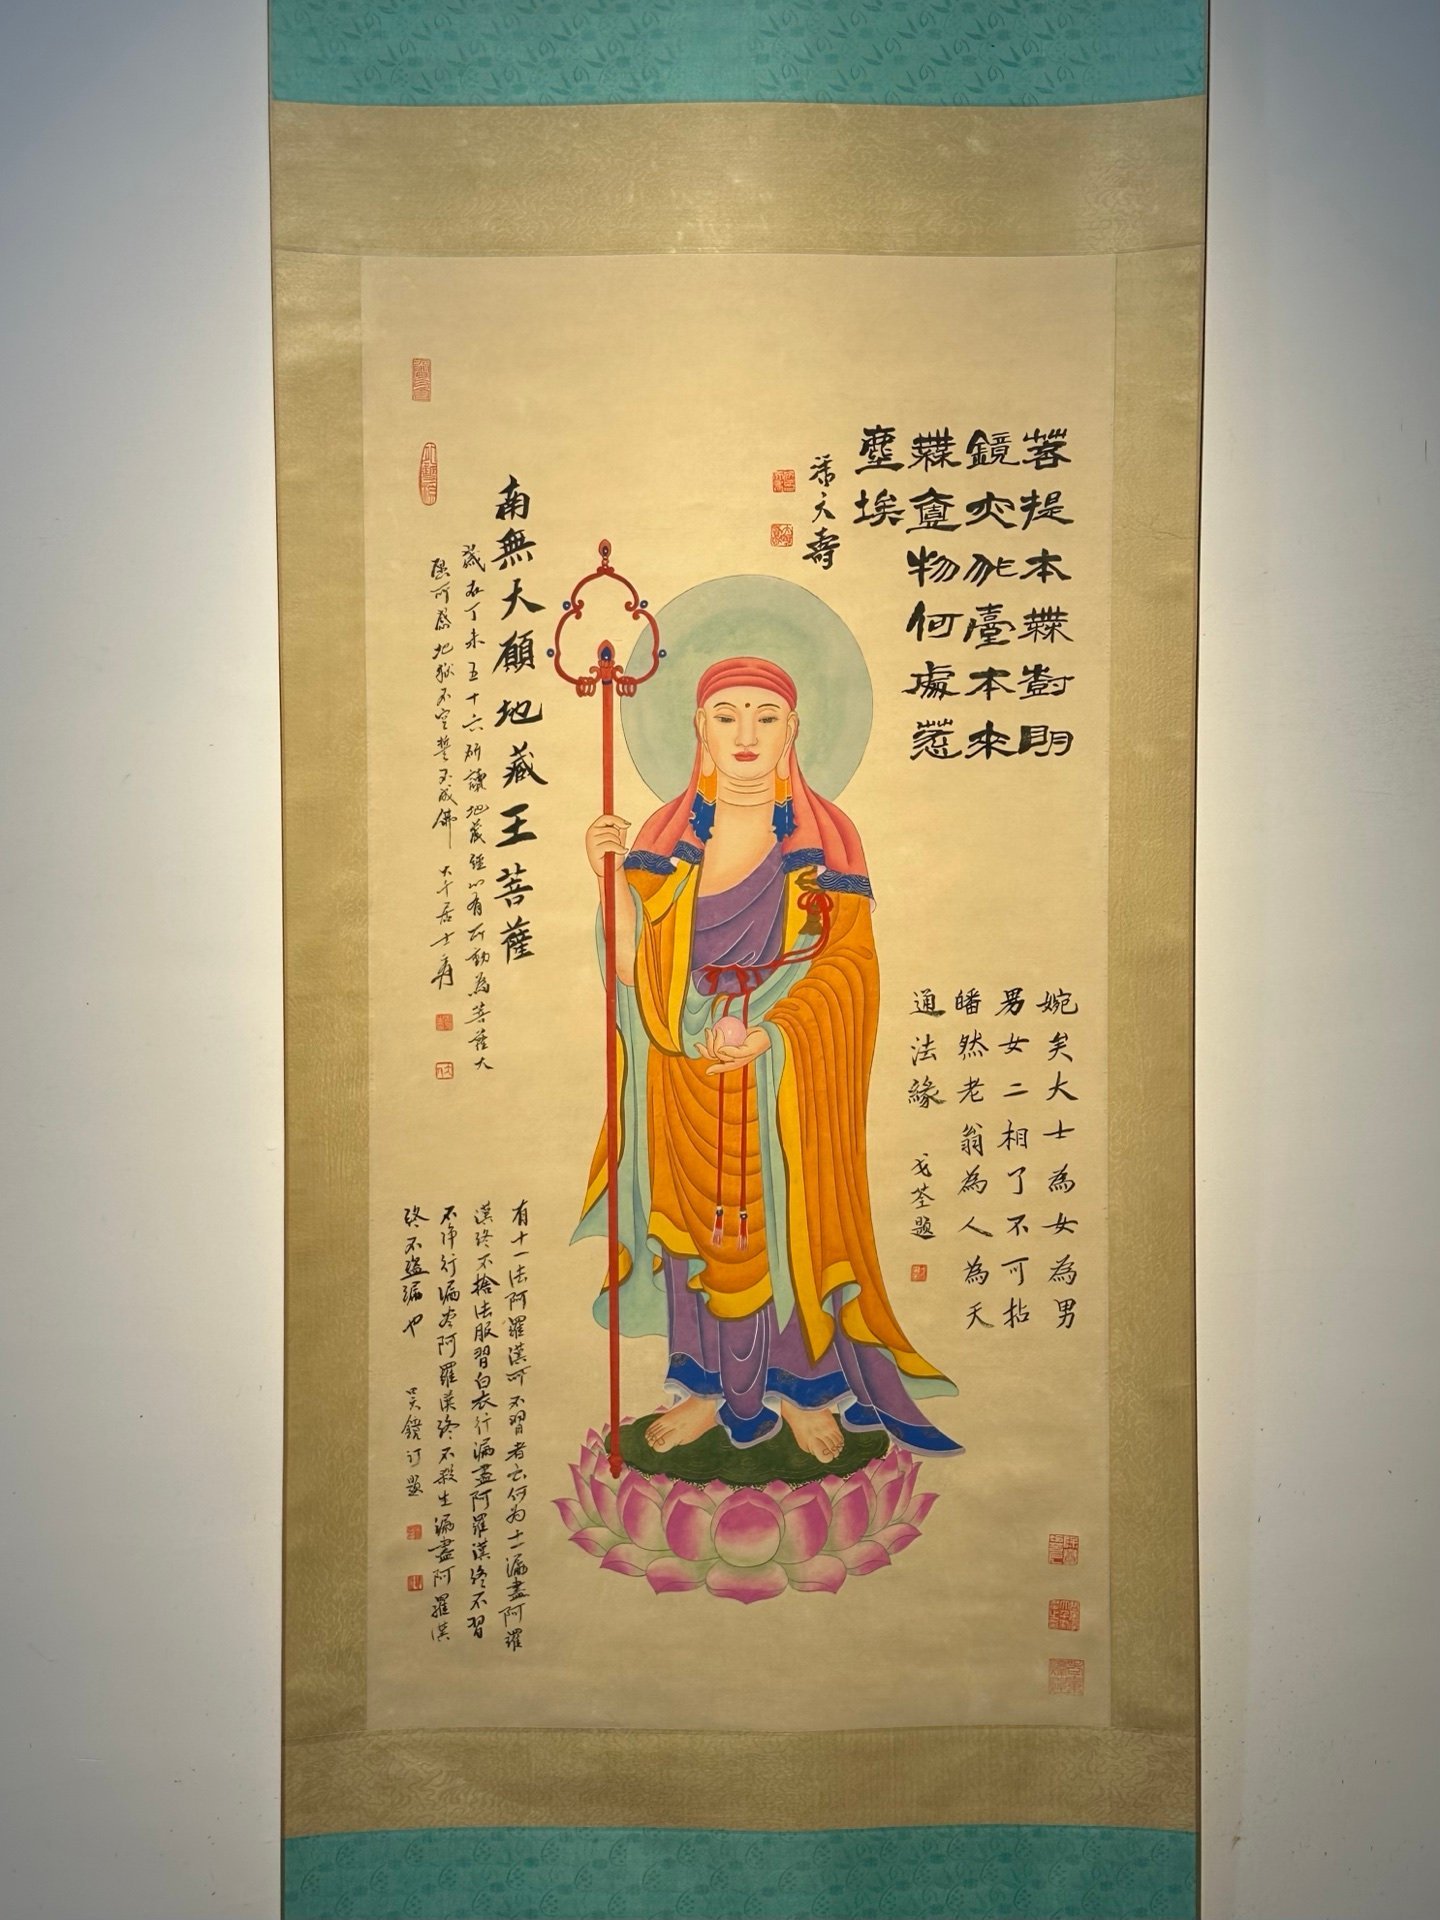 菩提本無樹明
鏡亦非臺本來
無壹物何處惹
塵埃
婉矣大士為女為男
男女二相了不可拈
皤然老翁為人為天
通法緣
題
南無大願地藏王菩薩
歲在丁未五十六 讀地藏經 有所動為菩薩大
願所感地獄不空誓不成佛 大千居士爰
有十一法阿羅漢所不習者云何為十一漏盡阿羅
漢終不捨法服習白衣行漏盡阿羅漢終不習
不淨行漏盡阿羅漢終不殺生漏盡阿羅漢
終不盜漏也
吳鏡汀題